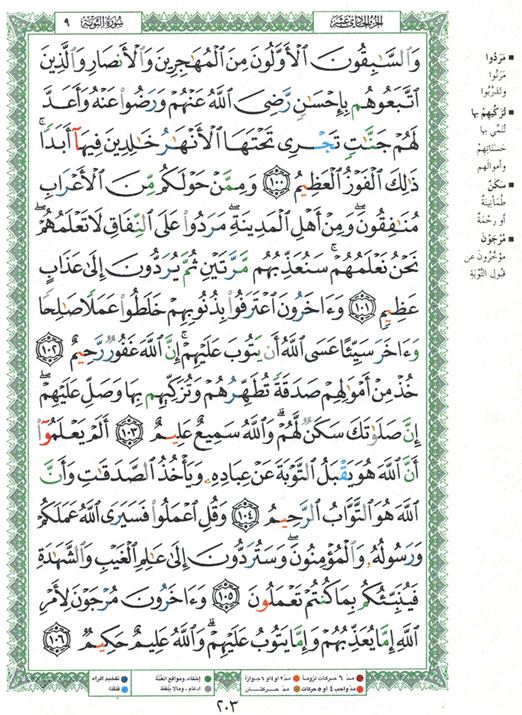 الجزء الحادي عشر
سورة التوبة ٩
وَالسَّٰبِقُونَ الْأَوَّلُونَ مِنَ الْمُهَٰجِرِينَ وَالْأَنصَارِ وَالَّذِينَ
اتَّبَعُوهُم بِإِحْسَٰنٍ رَّضِيَ اللَّهُ عَنْهُمْ وَرَضُوا عَنْهُ وَأَعَدَّ
لَهُمْ جَنَّٰتٍ تَجْرِي تَحْتَهَا الْأَنْهَٰرُ خَٰلِدِينَ فِيهَآ أَبَدًا ۚ
ذَٰلِكَ الْفَوْزُ الْعَظِيمُ ١٠٠ وَمِمَّنْ حَوْلَكُم مِّنَ الْأَعْرَابِ
مُنَٰفِقُونَ ۖ وَمِنْ أَهْلِ الْمَدِينَةِ ۖ مَرَدُوا عَلَى النِّفَاقِ لَا تَعْلَمُهُمْ ۖ
نَحْنُ نَعْلَمُهُمْ ۚ سَنُعَذِّبُهُم مَّرَّتَيْنِ ثُمَّ يُرَدُّونَ إِلَىٰ عَذَابٍ
عَظِيمٍ ١٠١ وَءَاخَرُونَ اعْتَرَفُوا بِذُنُوبِهِمْ خَلَطُوا عَمَلًا صَٰلِحًا
وَءَاخَرَ سَيِّئًا عَسَى اللَّهُ أَن يَتُوبَ عَلَيْهِمْ ۚ إِنَّ اللَّهَ غَفُورٌ رَّحِيمٌ ١٠٢
خُذْ مِنْ أَمْوَٰلِهِمْ صَدَقَةً تُطَهِّرُهُمْ وَتُزَكِّيهِم بِهَا وَصَلِّ عَلَيْهِمْ ۖ
إِنَّ صَلَوٰتَكَ سَكَنٌ لَّهُمْ ۗ وَاللَّهُ سَمِيعٌ عَلِيمٌ ١٠٣ أَلَمْ يَعْلَمُوٓا
أَنَّ اللَّهَ هُوَ يَقْبَلُ التَّوْبَةَ عَنْ عِبَادِهِۦ وَيَأْخُذُ الصَّدَقَٰتِ وَأَنَّ
اللَّهَ هُوَ التَّوَّابُ الرَّحِيمُ ١٠٤ وَقُلِ اعْمَلُوا فَسَيَرَى اللَّهُ عَمَلَكُمْ
وَرَسُولُهُۥ وَالْمُؤْمِنُونَ ۖ وَسَتُرَدُّونَ إِلَىٰ عَٰلِمِ الْغَيْبِ وَالشَّهَٰدَةِ
فَيُنَبِّئُكُم بِمَا كُنتُمْ تَعْمَلُونَ ١٠٥ وَءَاخَرُونَ مُرْجَوْنَ لِأَمْرِ
اللَّهِ إِمَّا يُعَذِّبُهُمْ وَإِمَّا يَتُوبُ عَلَيْهِمْ ۗ وَاللَّهُ عَلِيمٌ حَكِيمٌ ١٠٦
مَرَدُوا
مَرَنُوا
وَتَدَرَّبُوا
تُزَكِّيهِمْ بِهَا
تُنَمِّي بِهَا
حَسَنَاتِهِمْ
وَأَمْوَالَهُمْ
سَكَنٌ
طُمَأْنِينَةٌ
أَوْ رَحْمَةٌ
مُرْجَوْنَ
مُؤَخَّرُونَ عَن
قَبُولِ التَّوْبَةِ
مدّ ٦ حركات لزوماً
مدّ ٢ أو ٤ أو ٦ جوازاً
إخفاء، ومواقع الغنّة
تفخيم الراء
مدّ واجب ٤ أو ٥ حركات
مدّ حركتان
إدغام، وما لا يلفظ
قلقلة
٢٠٣